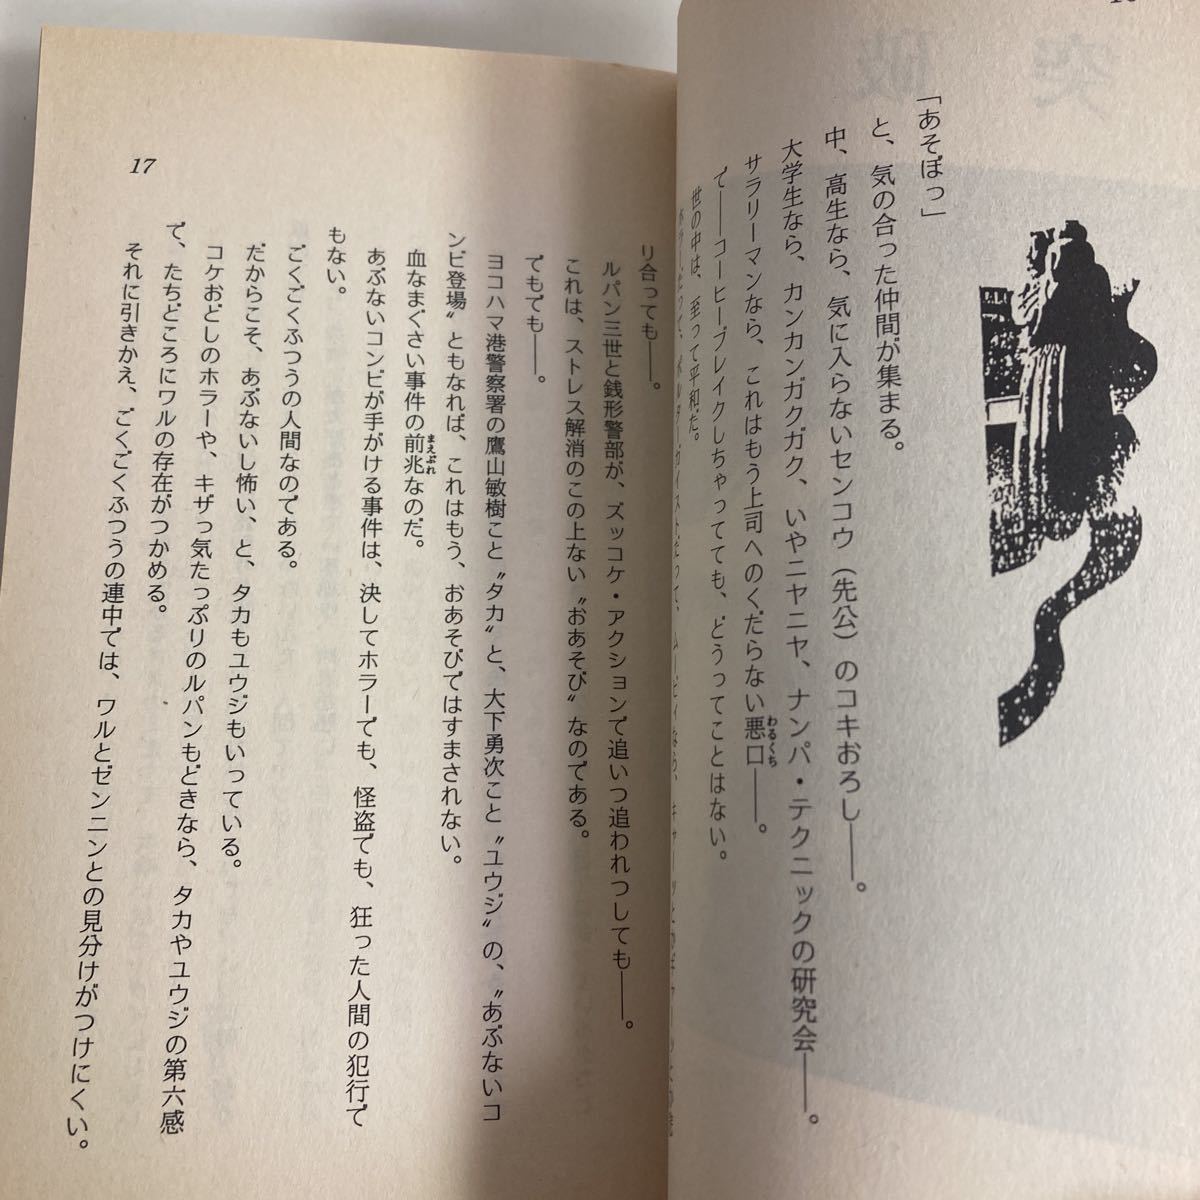 「あそぼっ」
と、気の合った仲間が集まる。
中、高生なら、気に入らないセンコウ(先公)のコキおろし――。
大学生なら、カンカンガクガク、いやニヤニヤ、ナンパ・テクニックの研究会――。
サラリーマンなら、これはもう上司へのくだらない悪口――。
わるくち
て――コーヒーブレイクしちゃってても、どうってことはない。
世の中は、至って平和だ。
ホラーだって、ポルターガイストだって、ムービィなら、キャーッとかギャーッ
リ合っても――。
ルパン三世と銭形警部が、ズッコケ・アクションで追いつ追われつしても――。
これは、ストレス解消のこの上ない〝おあそび〟なのである。
でもでも――。
ヨコハマ港警察署の鷹山敏樹こと〝タカ〟と、大下勇次こと〝ユウジ〟の、〝あぶないコ
ンビ登場〟ともなれば、これはもう、おあそびではすまされない。
血なまぐさい事件の前兆なのだ。
まえぶれ
あぶないコンビが手がける事件は、決してホラーでも、怪盗でも、狂った人間の犯行で
もない。
ごくごくふつうの人間なのである。
だからこそ、あぶないし怖い、と、タカもユウジもいっている。
コケおどしのホラーや、キザっ気たっぷりのルパンもどきなら、タカやユウジの第六感
で、たちどころにワルの存在がつかめる。
それに引きかえ、ごくごくふつうの連中では、ワルとゼンニンとの見分けがつけにくい。
17
突破